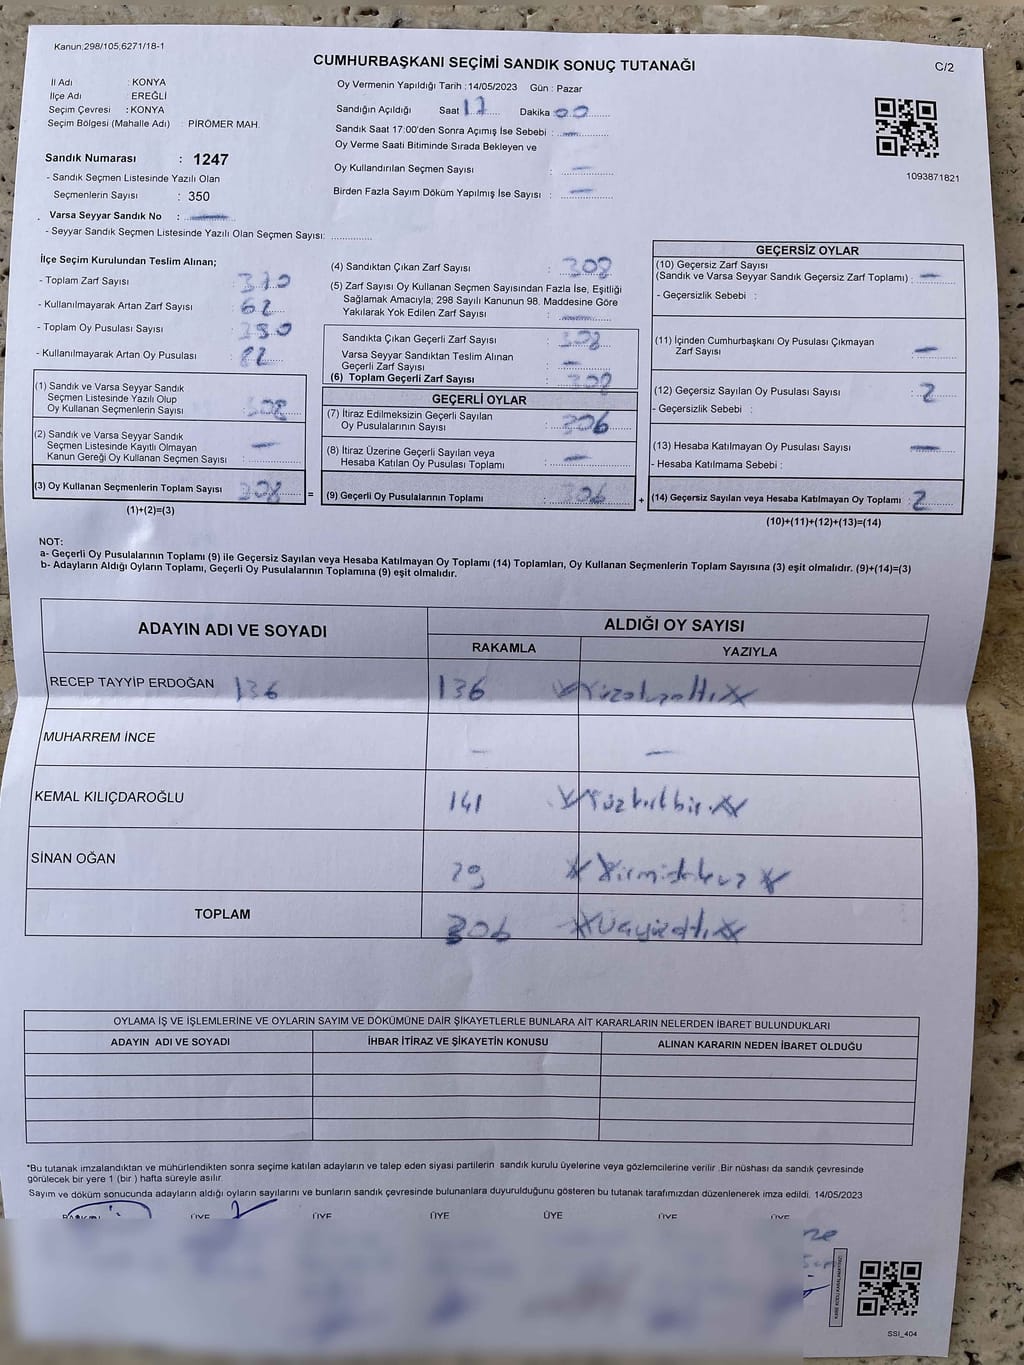 Kanun:298/105,6271/18-1
CUMHURBAŞKANI SEÇİMİ SANDIK SONUÇ TUTANAĞI
C/2
İl Adı : KONYA
İlçe Adı : EREĞLİ
Seçim Çevresi : KONYA
Seçim Bölgesi (Mahalle Adı) : PİRÖMER MAH.
Sandık Numarası : 1247
- Sandık Seçmen Listesinde Yazılı Olan
Seçmenlerin Sayısı : 350
Varsa Seyyar Sandık No : —
- Seyyar Sandık Seçmen Listesinde Yazılı Olan Seçmen Sayısı: ..............
Oy Vermenin Yapıldığı Tarih : 14/05/2023 Gün : Pazar
Sandığın Açıldığı Saat 17 Dakika 00
Sandık Saat 17:00'den Sonra Açımış İse Sebebi : —
Oy Verme Saati Bitiminde Sırada Bekleyen ve
Oy Kullandırılan Seçmen Sayısı : —
Birden Fazla Sayım Döküm Yapılmış İse Sayısı : —
1093871821
İlçe Seçim Kurulundan Teslim Alınan;
- Toplam Zarf Sayısı : 370
- Kullanılmayarak Artan Zarf Sayısı : 62
- Toplam Oy Pusulası Sayısı :
- Kullanılmayarak Artan Oy Pusulası :
(1) Sandık ve Varsa Seyyar Sandık
Seçmen Listesinde Yazılı Olup
Oy Kullanan Seçmenlerin Sayısı : 308
(2) Sandık ve Varsa Seyyar Sandık
Seçmen Listesinde Kayıtlı Olmayan
Kanun Gereği Oy Kullanan Seçmen Sayısı : —
(3) Oy Kullanan Seçmenlerin Toplam Sayısı : 308 =
(1)+(2)=(3)
(4) Sandıktan Çıkan Zarf Sayısı : 308
(5) Zarf Sayısı Oy Kullanan Seçmen Sayısından Fazla İse, Eşitliği
Sağlamak Amacıyla; 298 Sayılı Kanunun 98. Maddesine Göre
Yakılarak Yok Edilen Zarf Sayısı : —
Sandıkta Çıkan Geçerli Zarf Sayısı : 308
Varsa Seyyar Sandıktan Teslim Alınan
Geçerli Zarf Sayısı : —
(6) Toplam Geçerli Zarf Sayısı : 308
GEÇERLİ OYLAR
(7) İtiraz Edilmeksizin Geçerli Sayılan
Oy Pusulalarının Sayısı : 306
(8) İtiraz Üzerine Geçerli Sayılan veya
Hesaba Katılan Oy Pusulası Toplamı : —
(9) Geçerli Oy Pusulalarının Toplamı : 306 +
GEÇERSİZ OYLAR
(10) Geçersiz Zarf Sayısı
(Sandık ve Varsa Seyyar Sandık Geçersiz Zarf Toplamı) : —
- Geçersizlik Sebebi :
(11) İçinden Cumhurbaşkanı Oy Pusulası Çıkmayan
Zarf Sayısı : —
(12) Geçersiz Sayılan Oy Pusulası Sayısı : 2
- Geçersizlik Sebebi :
(13) Hesaba Katılmayan Oy Pusulası Sayısı : —
- Hesaba Katılmama Sebebi :
(14) Geçersiz Sayılan veya Hesaba Katılmayan Oy Toplamı : 2
(10)+(11)+(12)+(13)=(14)
NOT:
a- Geçerli Oy Pusulalarının Toplamı (9) ile Geçersiz Sayılan veya Hesaba Katılmayan Oy Toplamı (14) Toplamları, Oy Kullanan Seçmenlerin Toplam Sayısına (3) eşit olmalıdır. (9)+(14)=(3)
b- Adayların Aldığı Oyların Toplamı, Geçerli Oy Pusulalarının Toplamına (9) eşit olmalıdır.
ADAYIN ADI VE SOYADI
ALDIĞI OY SAYISI
RAKAMLA YAZIYLA
RECEP TAYYİP ERDOĞAN 136 136 Yüzotuzaltı
MUHARREM İNCE - —
KEMAL KILIÇDAROĞLU 141 Yüzkırkbir
SİNAN OĞAN 29 Yirmidokuz
TOPLAM 306 Üçyüzaltı
OYLAMA İŞ VE İŞLEMLERİNE VE OYLARIN SAYIM VE DÖKÜMÜNE DAİR ŞİKAYETLERLE BUNLARA AİT KARARLARIN NELERDEN İBARET BULUNDUKLARI
ADAYIN ADI VE SOYADI İHBAR İTİRAZ VE ŞİKAYETİN KONUSU ALINAN KARARIN NEDEN İBARET OLDUĞU
*Bu tutanak imzalandıktan ve mühürlendikten sonra seçime katılan adayların ve talep eden siyasi partilerin sandık kurulu üyelerine veya gözlemcilerine verilir .Bir nüshası da sandık çevresinde
görülecek bir yere 1 (bir ) hafta süreyle asılır.
Sayım ve döküm sonucunda adayların aldığı oyların sayılarını ve bunların sandık çevresinde bulunanlara duyurulduğunu gösteren bu tutanak tarafımızdan düzenlenerek imza edildi. 14/05/2023
ÜYE ÜYE ÜYE ÜYE ÜYE ÜYE
SSI_404